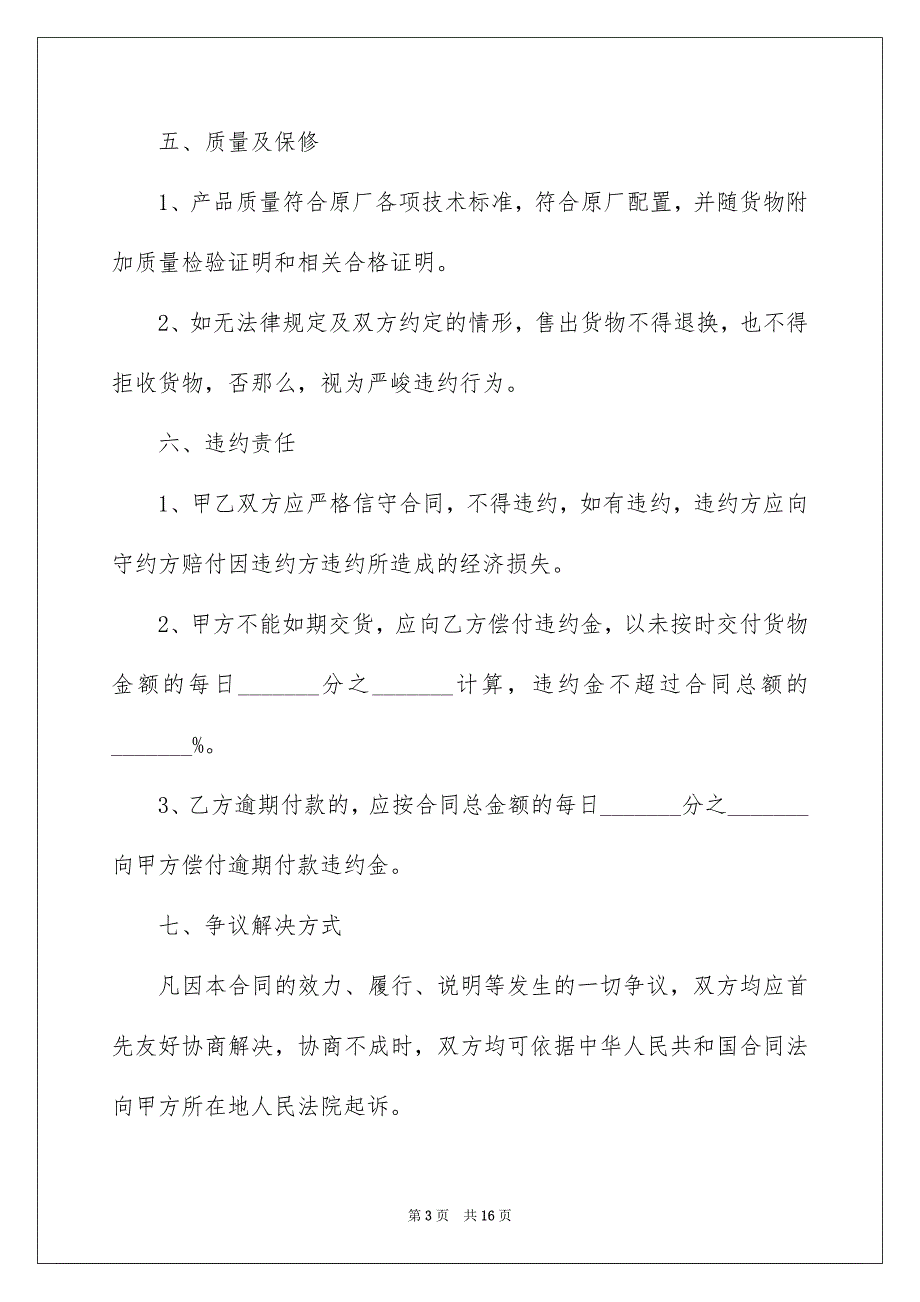 五、质量及保修
1、产品质量符合原厂各项技术标准，符合原厂配置，并随货物附
加质量检验证明和相关合格证明。
2、如无法律规定及双方约定的情形，售出货物不得退换，也不得
拒收货物，否那么，视为严峻违约行为。
六、违约责任
1、甲乙双方应严格信守合同，不得违约，如有违约，违约方应向
守约方赔付因违约方违约所造成的经济损失。
2、甲方不能如期交货，应向乙方偿付违约金，以未按时交付货物
金额的每日_______分之_______计算，违约金不超过合同总额的
_______%。
3、乙方逾期付款的，应按合同总金额的每日_______分之_______
向甲方偿付逾期付款违约金。
七、争议解决方式
凡因本合同的效力、履行、说明等发生的一切争议，双方均应首
先友好协商解决，协商不成时，双方均可依据中华人民共和国合同法
向甲方所在地人民法院起诉。
第 3 页 共 16 页